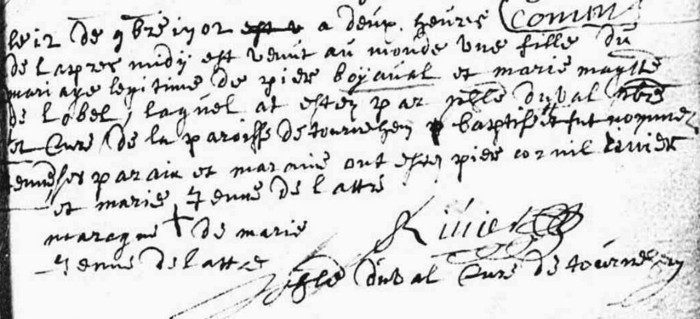 le 12 de 9bre 1702 a deux heures
de lapres midy est venut au monde une fille du
mariage legitime de piers boyaval et marie magtte
de lobel, laquel at estez par duval pbre
et Cure de la paroisse de tournehen baptisé et fut nommez
ses parain et maraine ont estez piers cornil
et marie Jenne de lattre
maraque de marie
Jenne de lattre
duval Cure de tournehen